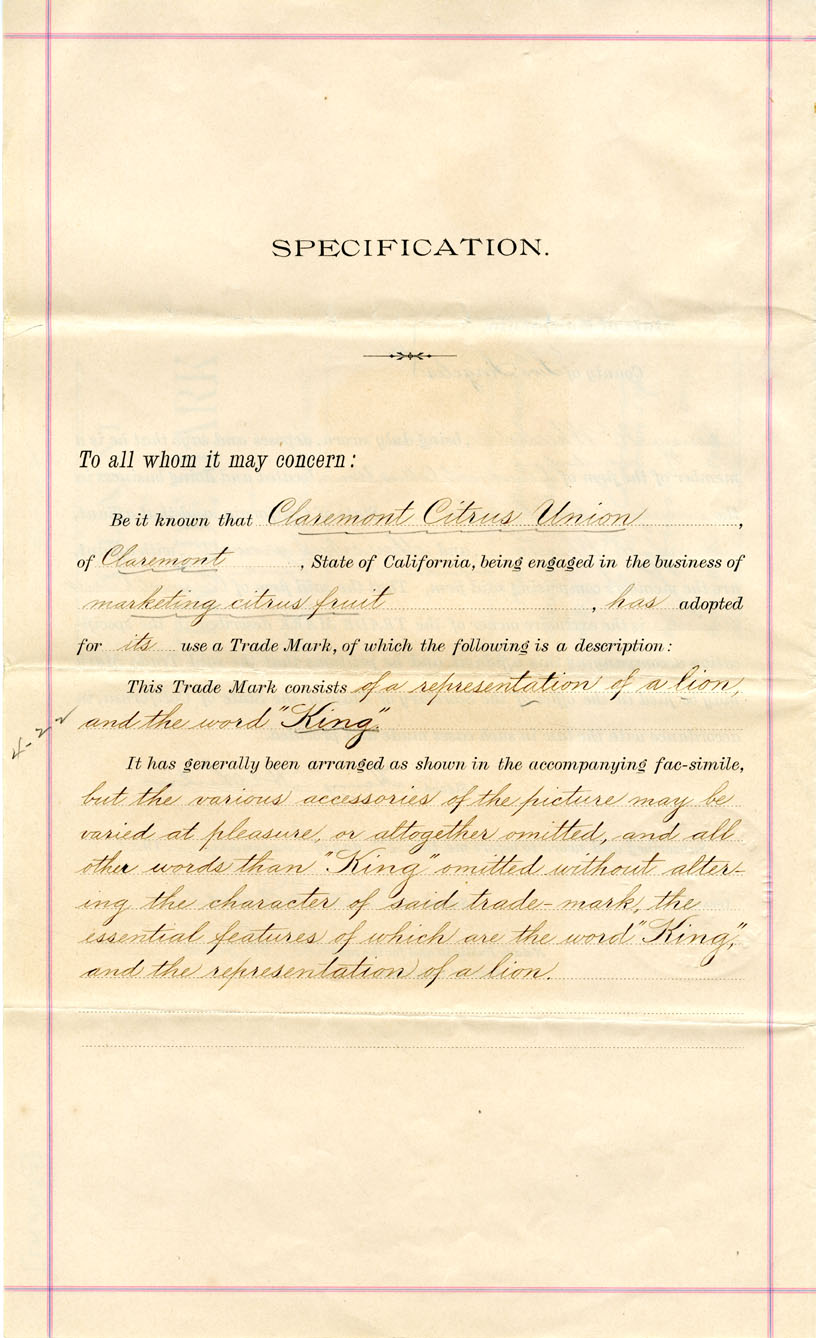 SPECIFICATION.
To all whom it may concern:
Be it known that Claremont Citrus Union,
of Claremont, State of California, being engaged in the business of
marketing citrus fruit, has adopted
for its use a Trade Mark, of which the following is a description:
This Trade Mark consists of a representation of a lion,
and the word "King".
4-22
It has generally been arranged as shown in the accompanying fac-simile,
but the various accessories of the picture may be
varied at pleasure, or altogether omitted, and all
other words than "King" omitted without alter-
ing the character of said trade-mark, the
essential features of which are the word "King",
and the representation of a lion.